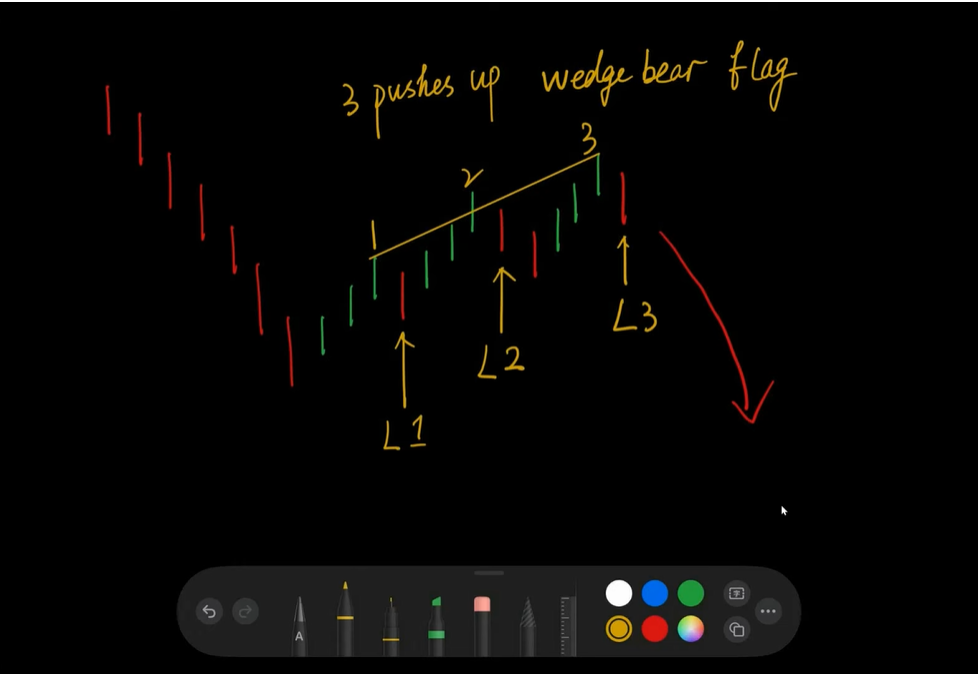 3 pushes up wedge bear flag
3
2
1
L3
L2
L1
A